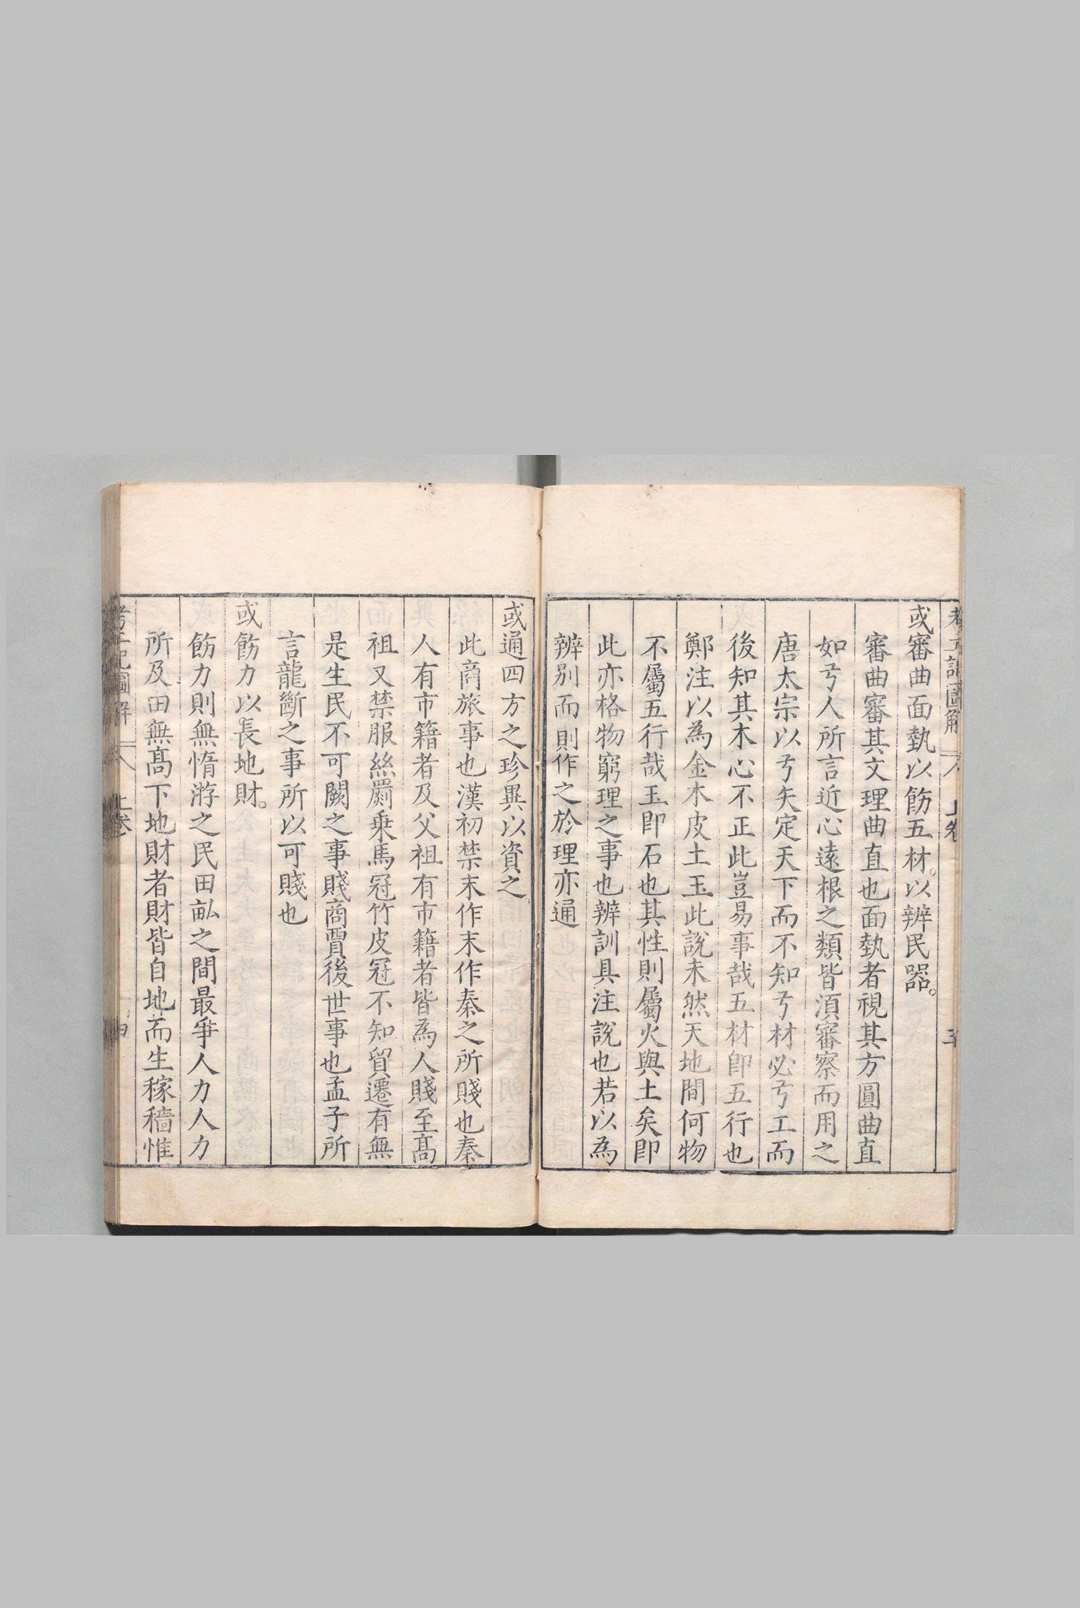 或審曲面埶以飭五材。以辨民器。
審曲審其文理曲直也面埶者視其方圓曲直
如弓人所言近心遠根之類皆須審察而用之
唐太宗以弓矢定天下而不知弓材必弓工而
後知其木心不正此豈易事哉五材即五行也
鄭注以為金木皮土玉此說未然天地間何物
不屬五行哉玉即石也其性則屬火與土矣即
此亦格物窮理之事也辨訓具注說也若以為
辨別而則作之於理亦通
或通四方之珍異以資之
此商旅事也漢初禁末作末作秦之所賤也秦
人有市籍者及父祖有市籍者皆為人賤至髙
祖又禁服絲罽乗馬冠竹皮冠不知貿遷有無
是生民不可闕之事賤商賈後世事也孟子所
言龍斷之事所以可賤也
或飭力以長地財。
飭力則無惰游之民田畝之間最爭人力人力
所及田無髙下地財者財皆自地而生稼穡惟
考工記圖解 上卷